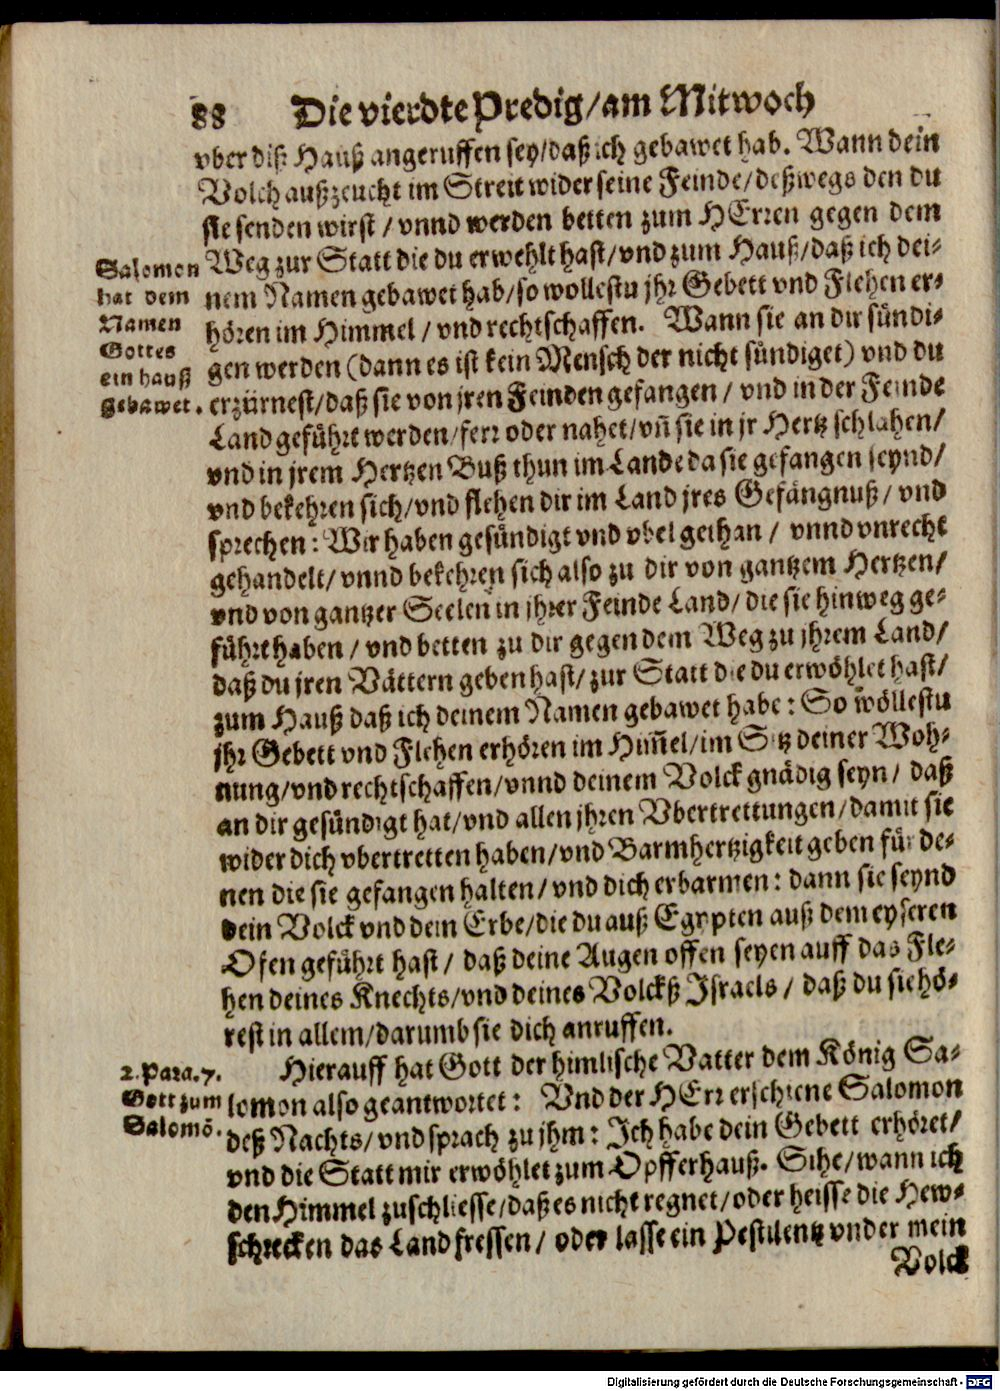 88 Die vierdte Predig/am Mitwoch
vber diß Hauß angeruffen sey/daß ich gebawet hab. Wann dein
Volck außzeucht im Streit wider seine Feinde/deßwegs den du
sie senden wirst/vnnd werden betten zum HErren gegen dem
Weg zur Statt die du erwehlt hast/vnd zum Hauß/daß ich dei-
nem Namen gebawet hab/so wollestu jhr Gebett vnd Flehen er-
hören im Himmel/vnd rechtschaffen. Wann sie an dir sündi-
gen werden (dann es ist kein Mensch der nicht sündiget) vnd du
erzürnest/daß sie von jren Feinden gefangen/vnd in der Feinde
Land geführt werden/ferr oder nahet/vñ sie in jr Hertz schlahen/
vnd in jrem Hertzen Buß thun im Lande da sie gefangen seynd/
vnd bekehren sich/vnd flehen dir im Land jres Gefängnuß/vnd
sprechen: Wir haben gesündigt vnd vbel gethan/vnnd vnrecht
gehandelt/vnnd bekehren sich also zu dir von gantzem Hertzen/
vnd von gantzer Seelen in jhrer Feinde Land/die sie hinweg ge-
führt haben/vnd betten zu dir gegen dem Weg zu jhrem Land/
daß du jren Vättern geben hast/zur Statt die du erwöhlet hast/
zum Hauß daß ich deinem Namen gebawet habe: So wöllestu
jhr Gebett vnd Flehen erhören im Him̃el/im Sitz deiner Woh-
nung/vnd rechtschaffen/vnnd deinem Volck gnädig seyn/daß
an dir gesündigt hat/vnd allen jhren Vbertrettungen/damit sie
wider dich vbertretten haben/vnd Barmhertzigkeit geben für de-
nen die sie gefangen halten/vnd dich erbarmen: dann sie seynd
dein Volck vnd dein Erbe/die du auß Egypten auß dem eyseren
Ofen geführt hast/daß deine Augen offen seyen auff das Fle-
hen deines Knechts/vnd deines Volckß Israels/daß du sie hö-
rest in allem/darumb sie dich anruffen.
Hierauff hat Gott der himlische Vatter dem König Sa-
lomon also geantwortet: Vnd der HErr erschiene Salomon
deß Nachts/vnd sprach zu jhm: Ich habe dein Gebett erhöret/
vnd die Statt mir erwöhlet zum Opfferhauß. Sihe/wann ich
den Himmel zuschliesse/daß es nicht regnet/oder heisse die Hew-
schrecken das Land fressen/oder lasse ein Pestilentz vnder mein
Volck
Salomon
hat dem
Namen
Gottes
ein hauß
gebawet.
2. Para. 7.
Gott zum
Salomõ.
Digitalisierung gefördert durch die Deutsche Forschungsgemeinschaft - DFG